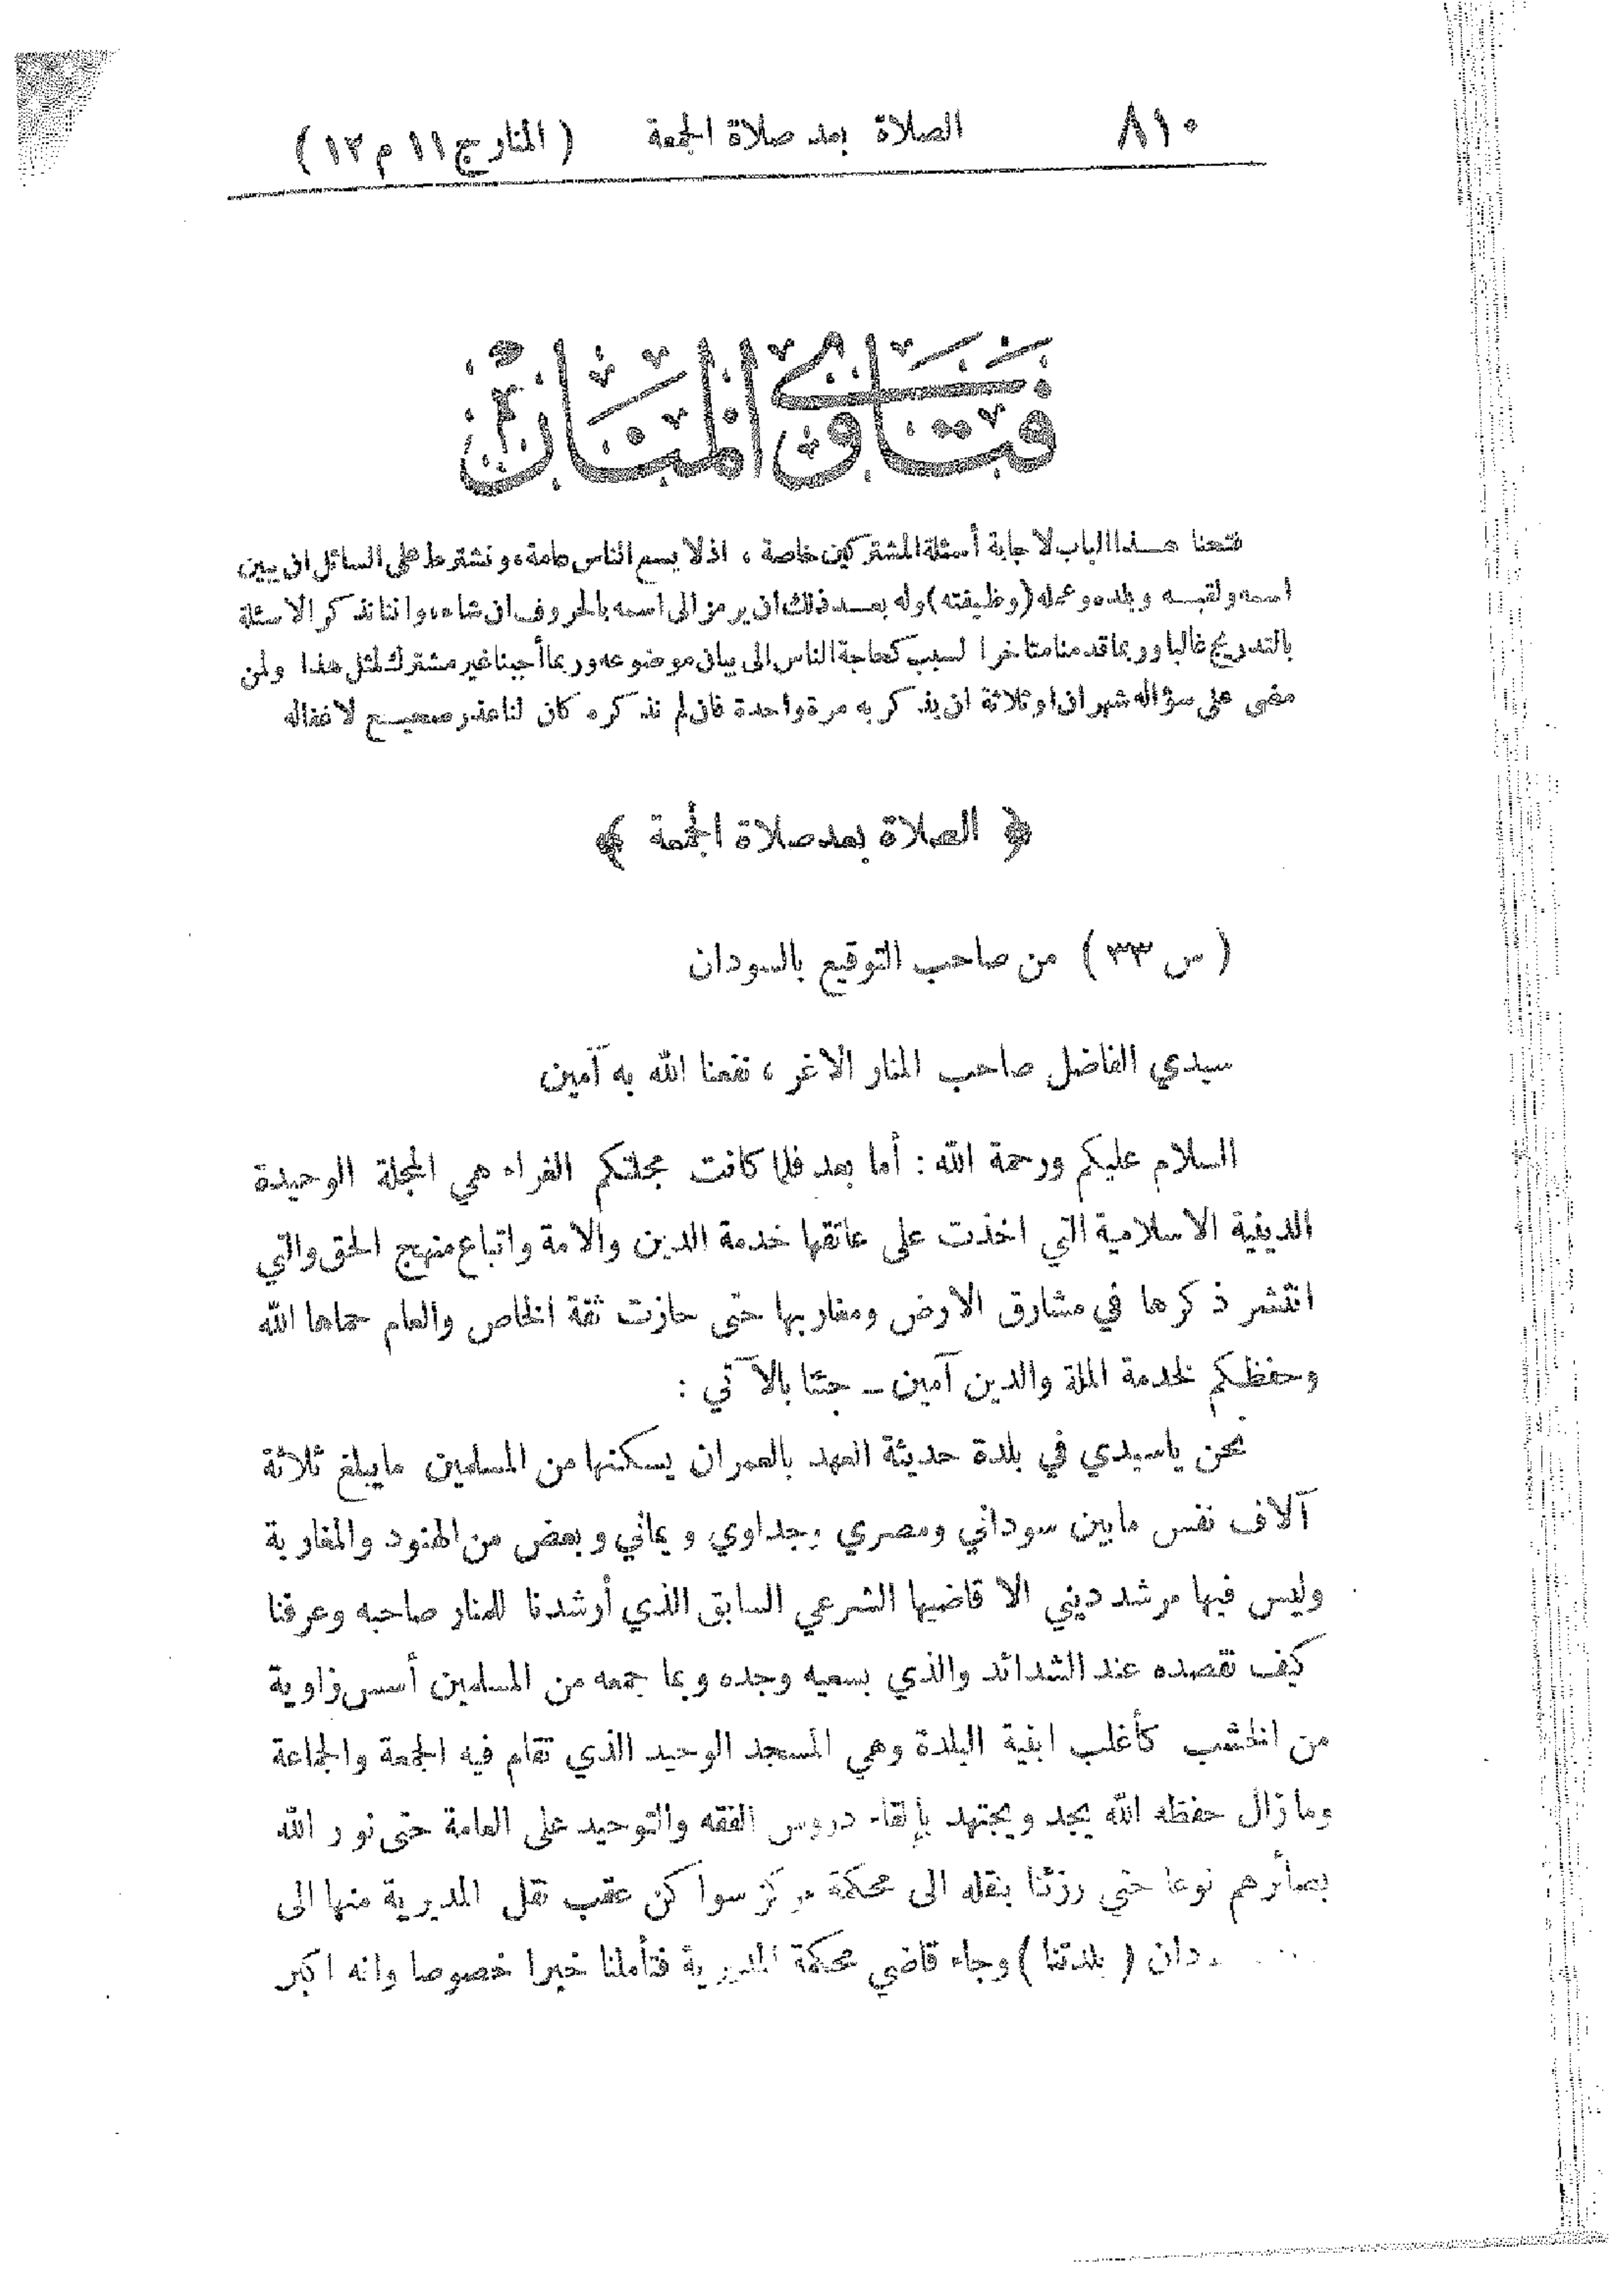 ٨١٠ الصلاة بعد صلاة الجمعة (المنار ج ١١ م ١٣)
فتاوى المنار
فتحنا هذا الباب لاجابة أسئلة المشتركين خاصة ، اذ لا يسع الناس عامة، ونشترط على السائل ان يبين
اسمه ولقبه وبلده وعمله (وظيفته) وله بعد ذلك ان يرمز الى اسمه بالحروف ان شاء، واننا نذكر الاسئلة
بالتدريج غالبا وربما قدمنا متاخرا لسبب كحاجة الناس الى بيان موضوعه وربما أجبنا غير مشترك لمثل هذا ولمن
مضى على سؤاله شهران او ثلاثة ان يذكر به مرة واحدة فان لم نذكره كان لنا عذر صحيح لاغفاله
﴿ الصلاة بعد صلاة الجمعة ﴾
( س ٣٣ ) من صاحب التوقيع بالسودان
سيدي الفاضل صاحب المنار الاغر ، نفعنا الله به آمين
السلام عليكم ورحمة الله : أما بعد فلما كانت مجلتكم الغراء هي المجلة الوحيدة
الدينية الاسلامية التي اخذت على عاتقها خدمة الدين والامة واتباع منهج الحق والتي
انتشر ذكرها في مشارق الارض ومغاربها حتى حازت ثقة الخاص والعام حماها الله
وحفظكم لخدمة الملة والدين آمين ــ جئنا بالآتي :
نحن ياسيدي في بلدة حديثة العهد بالعمران يسكنها من المسلمين مايبلغ ثلاثة
آلاف نفس مابين سوداني ومصري وجداوي ويماني وبعض من الهنود والمغاربة
وليس فيها مرشد ديني الا قاضيها الشرعي السابق الذي أرشدنا للمنار صاحبه وعرفنا
كيف نقصده عند الشدائد والذي بسعيه وجده وبما جمعه من المسلمين أسس زاوية
من الخشب كأغلب ابنية البلدة وهي المسجد الوحيد الذي تقام فيه الجمعة والجماعة
وما زال حفظه الله يجد ويجتهد بإلقاء دروس الفقه والتوحيد على العامة حتى نور الله
بصائرهم نوعا حتى رزئنا بنقله الى محكمة مركز سواكن عقب نقل المديرية منها الى
دان ( بلدتنا ) وجاء قاضي محكمة المديرية فتأملنا خيرا خصوصا وانه اكبر